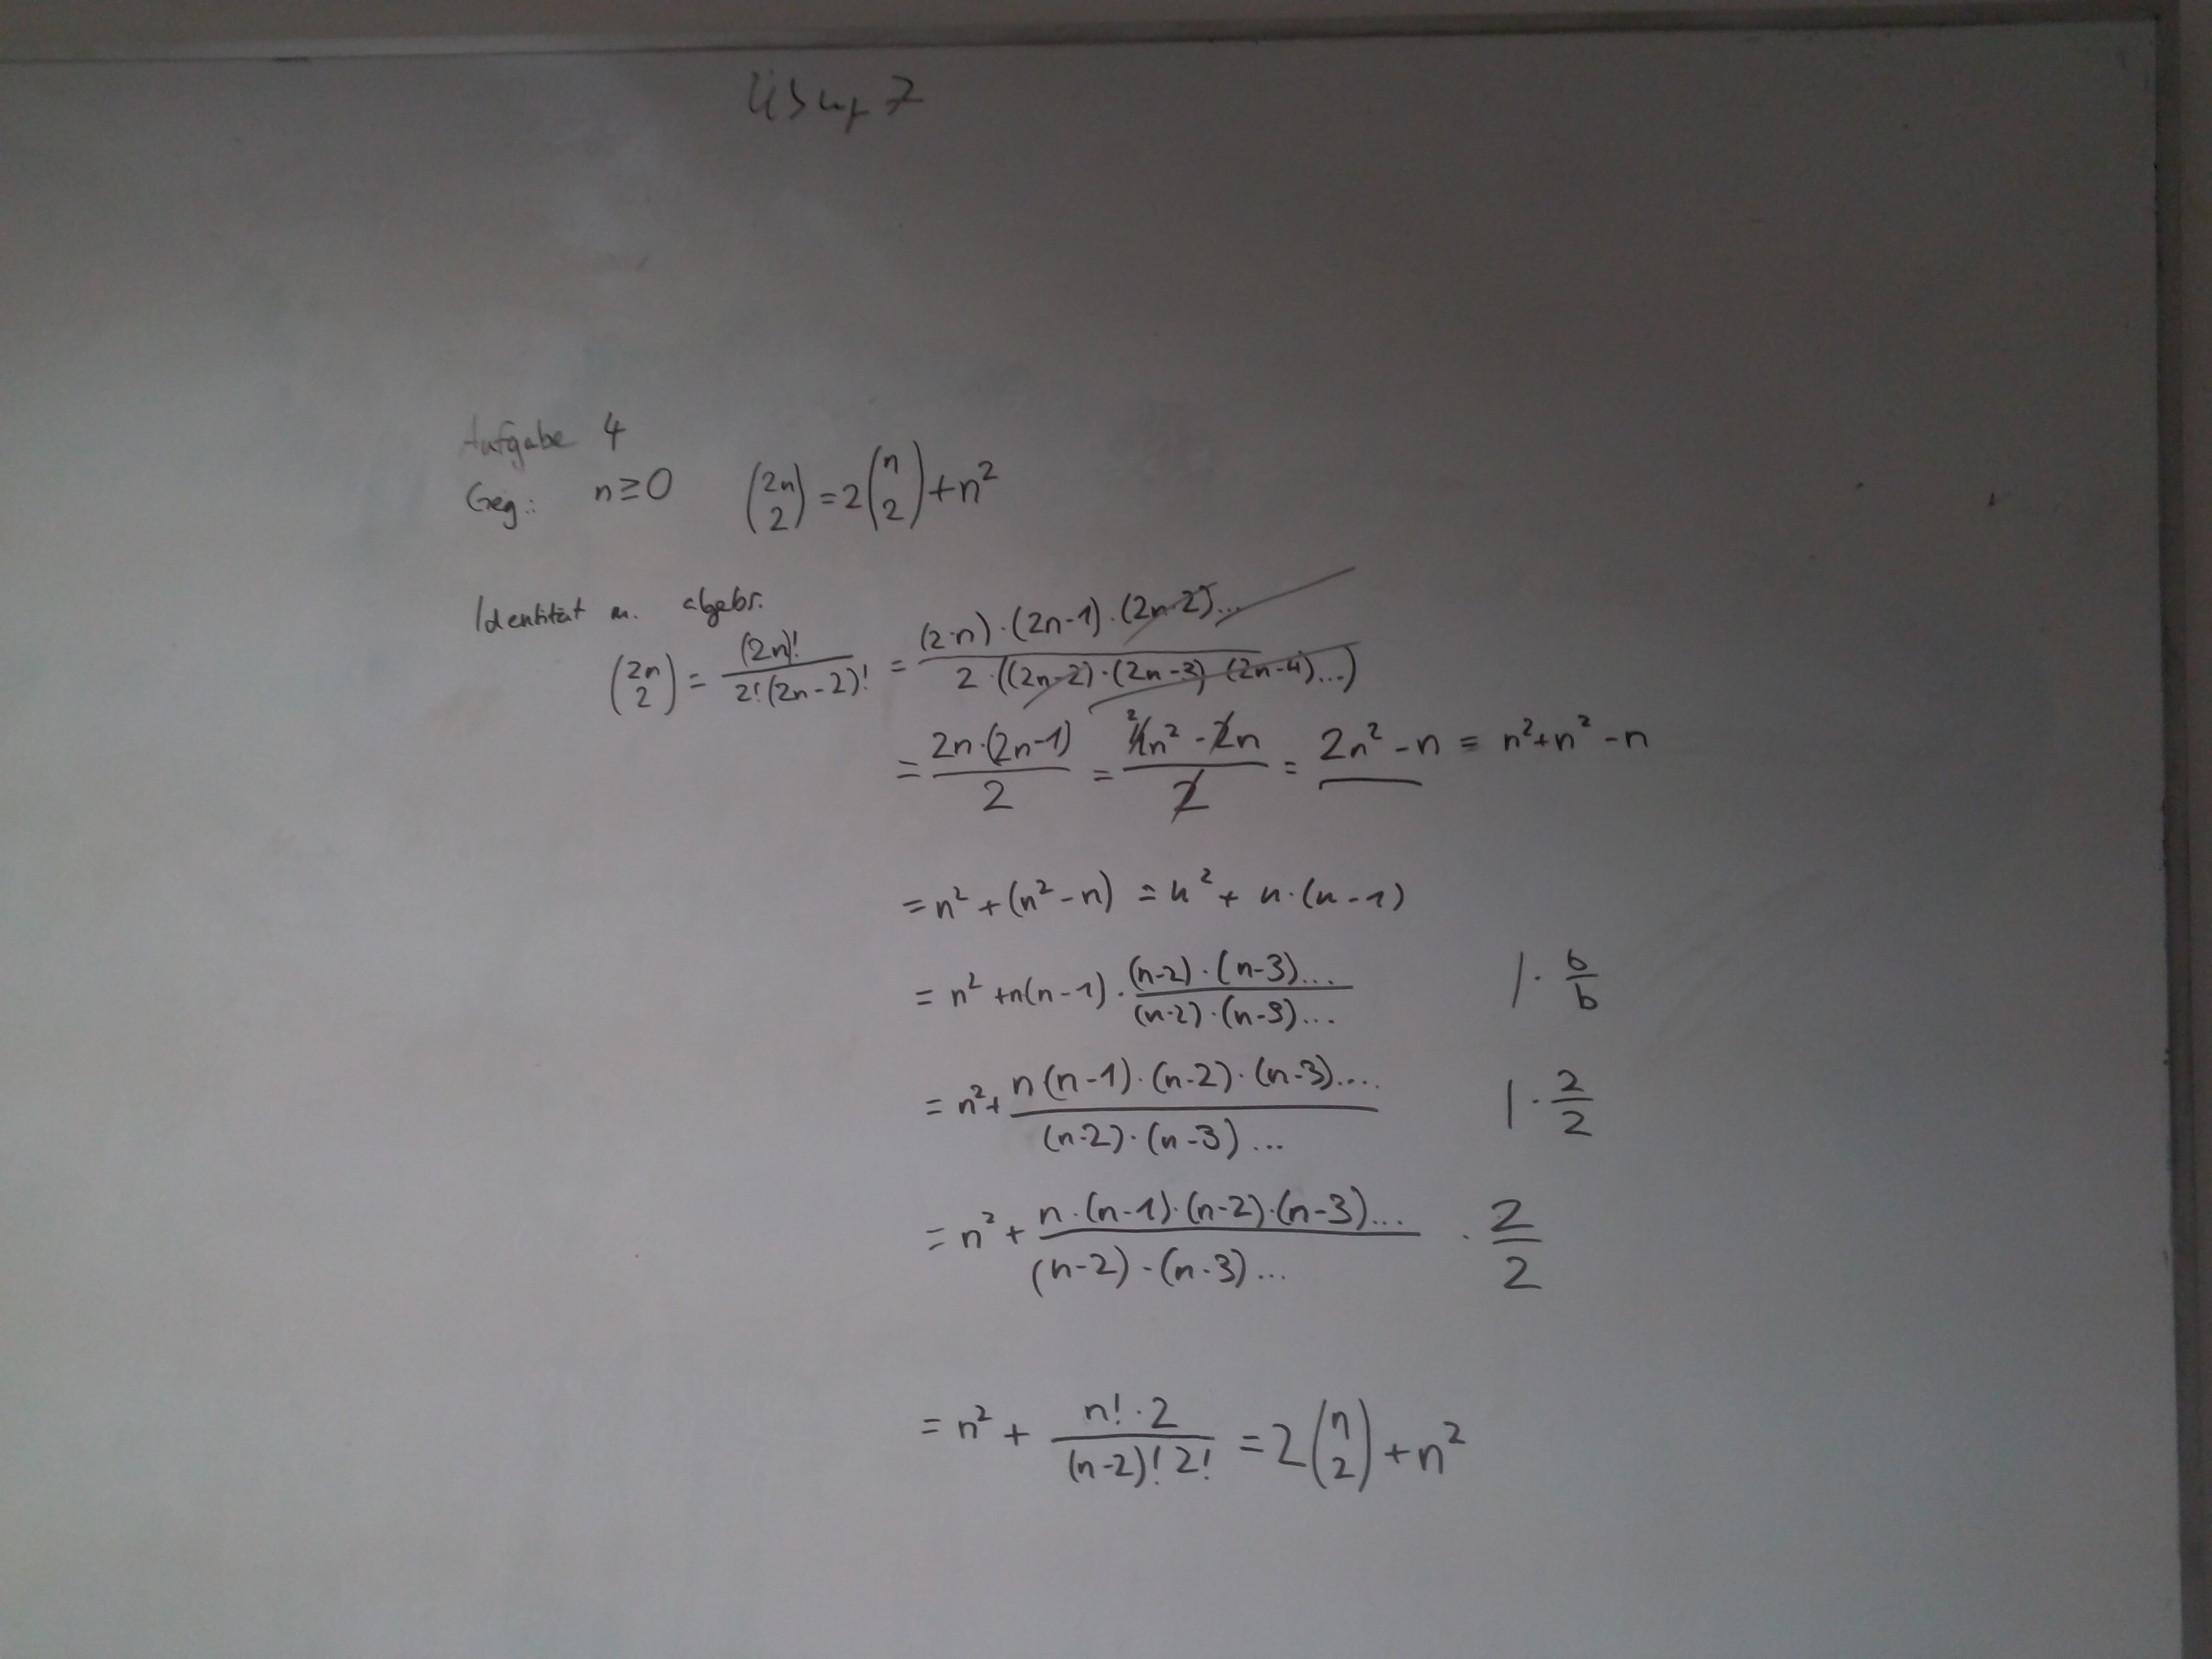 Übung 7
Aufgabe 4
Geg.: n ≥ 0 (2n über 2) = 2 (n über 2) + n²
Identität m. algebr.
(2n über 2) = (2n)! / 2!(2n-2)! = (2·n)·(2n-1)·(2n-2)... / 2·((2n-2)·(2n-3)·(2n-4)...)
= 2n·(2n-1) / 2 = ²4n² - 2n / 2 = 2n² - n = n² + n² - n
= n² + (n² - n) = n² + n·(n-1)
= n² + n(n-1) · (n-2)·(n-3)... / (n-2)·(n-3)... | · b/b
= n² + n(n-1)·(n-2)·(n-3).... / (n-2)·(n-3)... | · 2/2
= n² + n·(n-1)·(n-2)·(n-3)... / (n-2)·(n-3)... · 2/2
= n² + n!·2 / (n-2)! 2! = 2 (n über 2) + n²